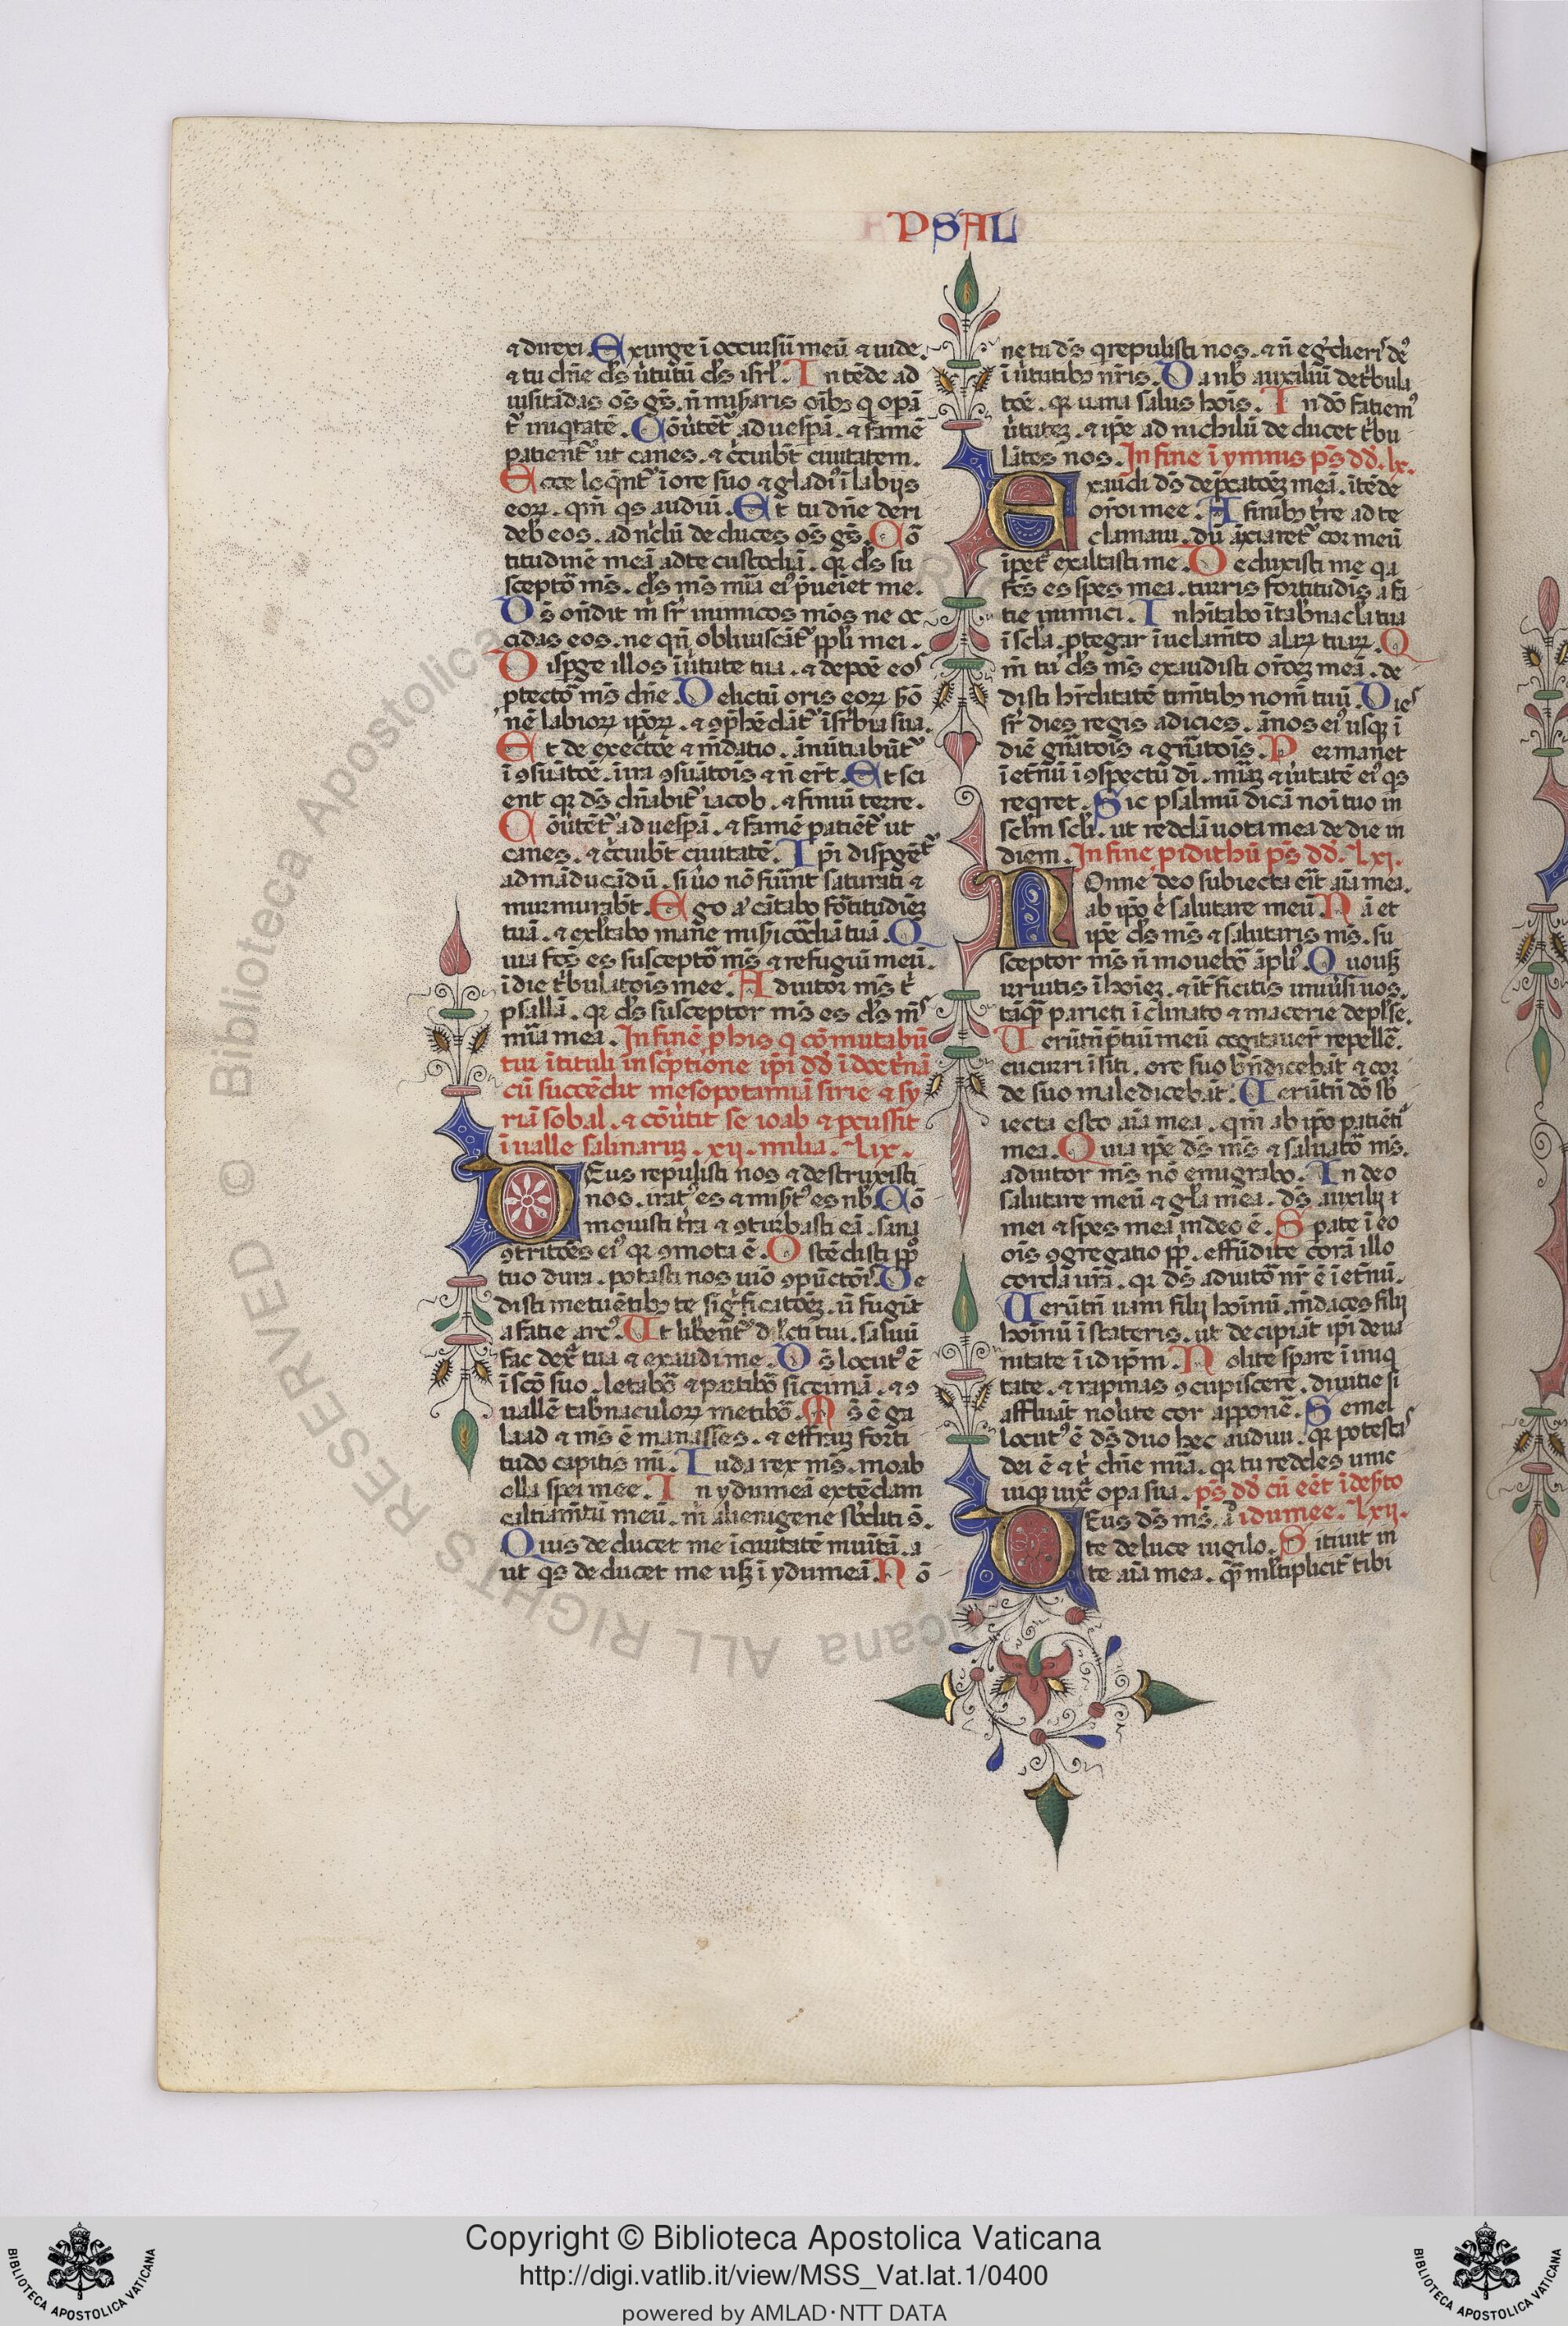 PSAL
⁊ direxi. Exurge ī occursū meū ⁊ uide.
⁊ tu dn̄e ds̄ ūtutū ds̄ isrł. Intēde ad
uisitādas oēs gēs. n̄ miserearis oībꝫ q̄ opā
t̄ iniq̄tatē. Cōūtēt̄ ad uesp̄ā. ⁊ famē
patient̄ ut canes. ⁊ c̄cuibt̄ ciuitatem.
Ecce loq̄nt̄ ī ore suo ⁊ gladiꝰ ī labijs
eoꝝ. qm̄ qs̄ audiuī. Et tu dn̄e deri
deb̄ eos. ad nichilū deduces oēs gēs. Fō
titudinē meā ad te custodiā. qꝛ ds̄ su
sceptō ms̄. ds̄ ms̄ mīa eiꝰ p̄ueiet me.
Ds̄ on̄dit m̄ sr̄ inimicos mōs ne oc
cidas eos. ne qn̄ obliuiscāt̄ pp̄li mei.
Disp̄ge illos ī ūtute tua. ⁊ depōe eos
ptectō ms̄ dn̄e. Delictū oris eoꝝ sermō
nē labioꝝ ipoꝝ. ⁊ ꝯp̄hēdāt̄ ī sr̄bia sua.
Et de execr̄tōe ⁊ mēdatio. ānūtiabūt̄
ī ꝯsūatōe. ī ira ꝯsūatōis ⁊ n̄ ert̄. Et sci
ent qꝛ ds̄ dn̄abit̄ iacob. ⁊ finiū terre.
Cōūtēt̄ ad uesp̄ā. ⁊ famē patiēt̄ ut
canes. ⁊ c̄cuibt̄ ciuitatē. Ip̄i disp̄gēt̄
ad māducādū. si ūo nō fūint saturati ⁊
murmurabt̄. Ego aꝰ cātabo fōtitudiēꝫ
tuā. ⁊ exłtabo mane mis̄icōdiā tuā. Q
uia fc̄s es susceptō ms̄ ⁊ refugiū meū.
ī die t̄bulatōis mee. Adiutor ms̄ t̄
psallā. qꝛ ds̄ susceptor ms̄ es ds̄ ms̄
mīa mea. In finē p his q̄ cōmutabū
tur ī tituli inscp̄tione ipī dd̄ ī doct̄nā
cū succēdit mesopotamiā sirie ⁊ sy
riā sobal. ⁊ cōūtit se ioab ⁊ pcussit
ī ualle salinarūꝫ. xij. milia. lix.
Deus repulisti nos ⁊ destruxisti
nos. iratꝰ es ⁊ mis̄tꝰ es nb̄. Cō
mouisti t̄ra ⁊ ꝯturbasti eā. sana
ꝯtritōes eiꝰ qꝛ ꝯmota ē. Ostēdisti pp̄o
tuo dura. potasti nos uīo ꝯpūctōis. De
disti metuētibꝫ te sigficatōeꝫ. ut fugiāt
a fatie arcꝰ. Ut libent̄ dilecti tui. saluū
fac dext̄ tua ⁊ exaudi me. Ds̄ locutꝰ ē
ī scō suo. letabō ⁊ partibō siccimā. ⁊ ꝯ
uallē tabnaculoꝝ metibō. Ms̄ ē ga
laad ⁊ ms̄ ē manasses. ⁊ effraiꝫ forti
tudo capitis mī. Iuda rex ms̄. moab
olla spei mee. In ydumeā extēdam
caltiam̄tū meū. m̄ alienigene sb̄diti s̄.
Quis deducet me ī ciuitatē munitā. a
ut qs̄ deducet me usqꝫ ī ydumeā. Nō
ne tu ds̄ q repulisti nos. ⁊ n̄ egdierꝭ deꝰ
ī ūtutibꝫ nr̄is. Da nb̄ auxiliū de t̄bula
tōe. qꝛ uana salus hoīs. In dō fatiemꝰ
ūtuteꝫ. ⁊ ipē ad nichilū deducet t̄bu
lātes nos. In fine ī ymnis ps̄ dd̄. lx.
Exaudi ds̄ dep̄catōeꝫ meā. ītēde
orōi mee. A finibꝫ t̄re ad te
clamaui. dū āxiaret̄ cor meū
ī pet̄ exaltasti me. Deduxisti me qa
fc̄s es spes mea. turris fortitudīs a fa
tie inimici. Inhītabo ī tab̄nacło tuo
ī scła. ptegar ī uelam̄to alaꝝ tuaꝝ. Q
m̄ tu ds̄ ms̄ exaudisti orōeꝫ meā. de
disti hr̄ditatē timētibꝫ nom̄ tuū. Dies
sr̄ dies regis adicies. ānos eiꝰ usqꝫ ī
diē gn̄atōis ⁊ gn̄atōis. Permanet
ī et̄nū ī ꝯspectū dī. mīaꝫ ⁊ ūitatē eiꝰ qs̄
reqret. Sic psalmū dicā noī tuo in
sc̄łm scłi. ut reddā uota mea de die in
diem. In fine p idithū ps̄ dd̄. lxi.
Nonne deo subiecta erit aīa mea.
ab ipō ē salutare meū. Nā et
ipē ds̄ ms̄ ⁊ salutaris ms̄. su
sceptor ms̄ n̄ mouebō āpliꝰ. Quousqꝫ
irruitis ī hoīeꝫ. ⁊ it̄ficitis uniūsi uos.
tāqꝫ parieti īclinato ⁊ macerie depłse.
Uerūtn̄ p̄tiū meū cogitauer̄ repellē.
cucurri ī siti. ore suo bn̄dicebāt ⁊ cor
de suo maledicebāt. Uerūtn̄ dō sb̄
iecta esto aīa mea. qm̄ ab ipō patiēti
mea. Quia ipē ds̄ ms̄ ⁊ saluatō ms̄.
adiutor ms̄ nō emigrabo. In deo
salutare meū ⁊ gła mea. ds̄ auxilij
mei ⁊ spes mea in deo ē. Sperate ī eo
oīs ꝯgregatio pp̄. effūdite corā illo
corda ur̄a. qꝛ ds̄ adiutō nr̄ ē ī et̄nū.
Uerūtn̄ uani filij hoīnū. mēdaces filij
hoīnū ī stateris. ut decipiāt ip̄i de ua
nitate ī id ipm̄. Nolite spare ī iniq
tate. ⁊ rapinas ꝯcupiscere. diuitie si
affluāt nolite cor apponē. Semel
locutꝰ ē ds̄ duo hec audiui. qꝛ potestas
dei ē ⁊ t̄ dn̄e mīa. qꝛ tu reddes unic
uiqꝫ iux̄ opa sua. ps̄ dd̄ cū eēt ī des̄to
Deus ds̄ ms̄. a idumee. lxij.
te de luce uigilo. Sitiuit in
te aīa mea. qꝫ młtiplicit̄ tibi
Copyright © Biblioteca Apostolica Vaticana
http://digi.vatlib.it/view/MSS_Vat.lat.1/0400
powered by AMLAD·NTT DATA
BIBLIOTECA APOSTOLICA VATICANA
BIBLIOTECA APOSTOLICA VATICANA